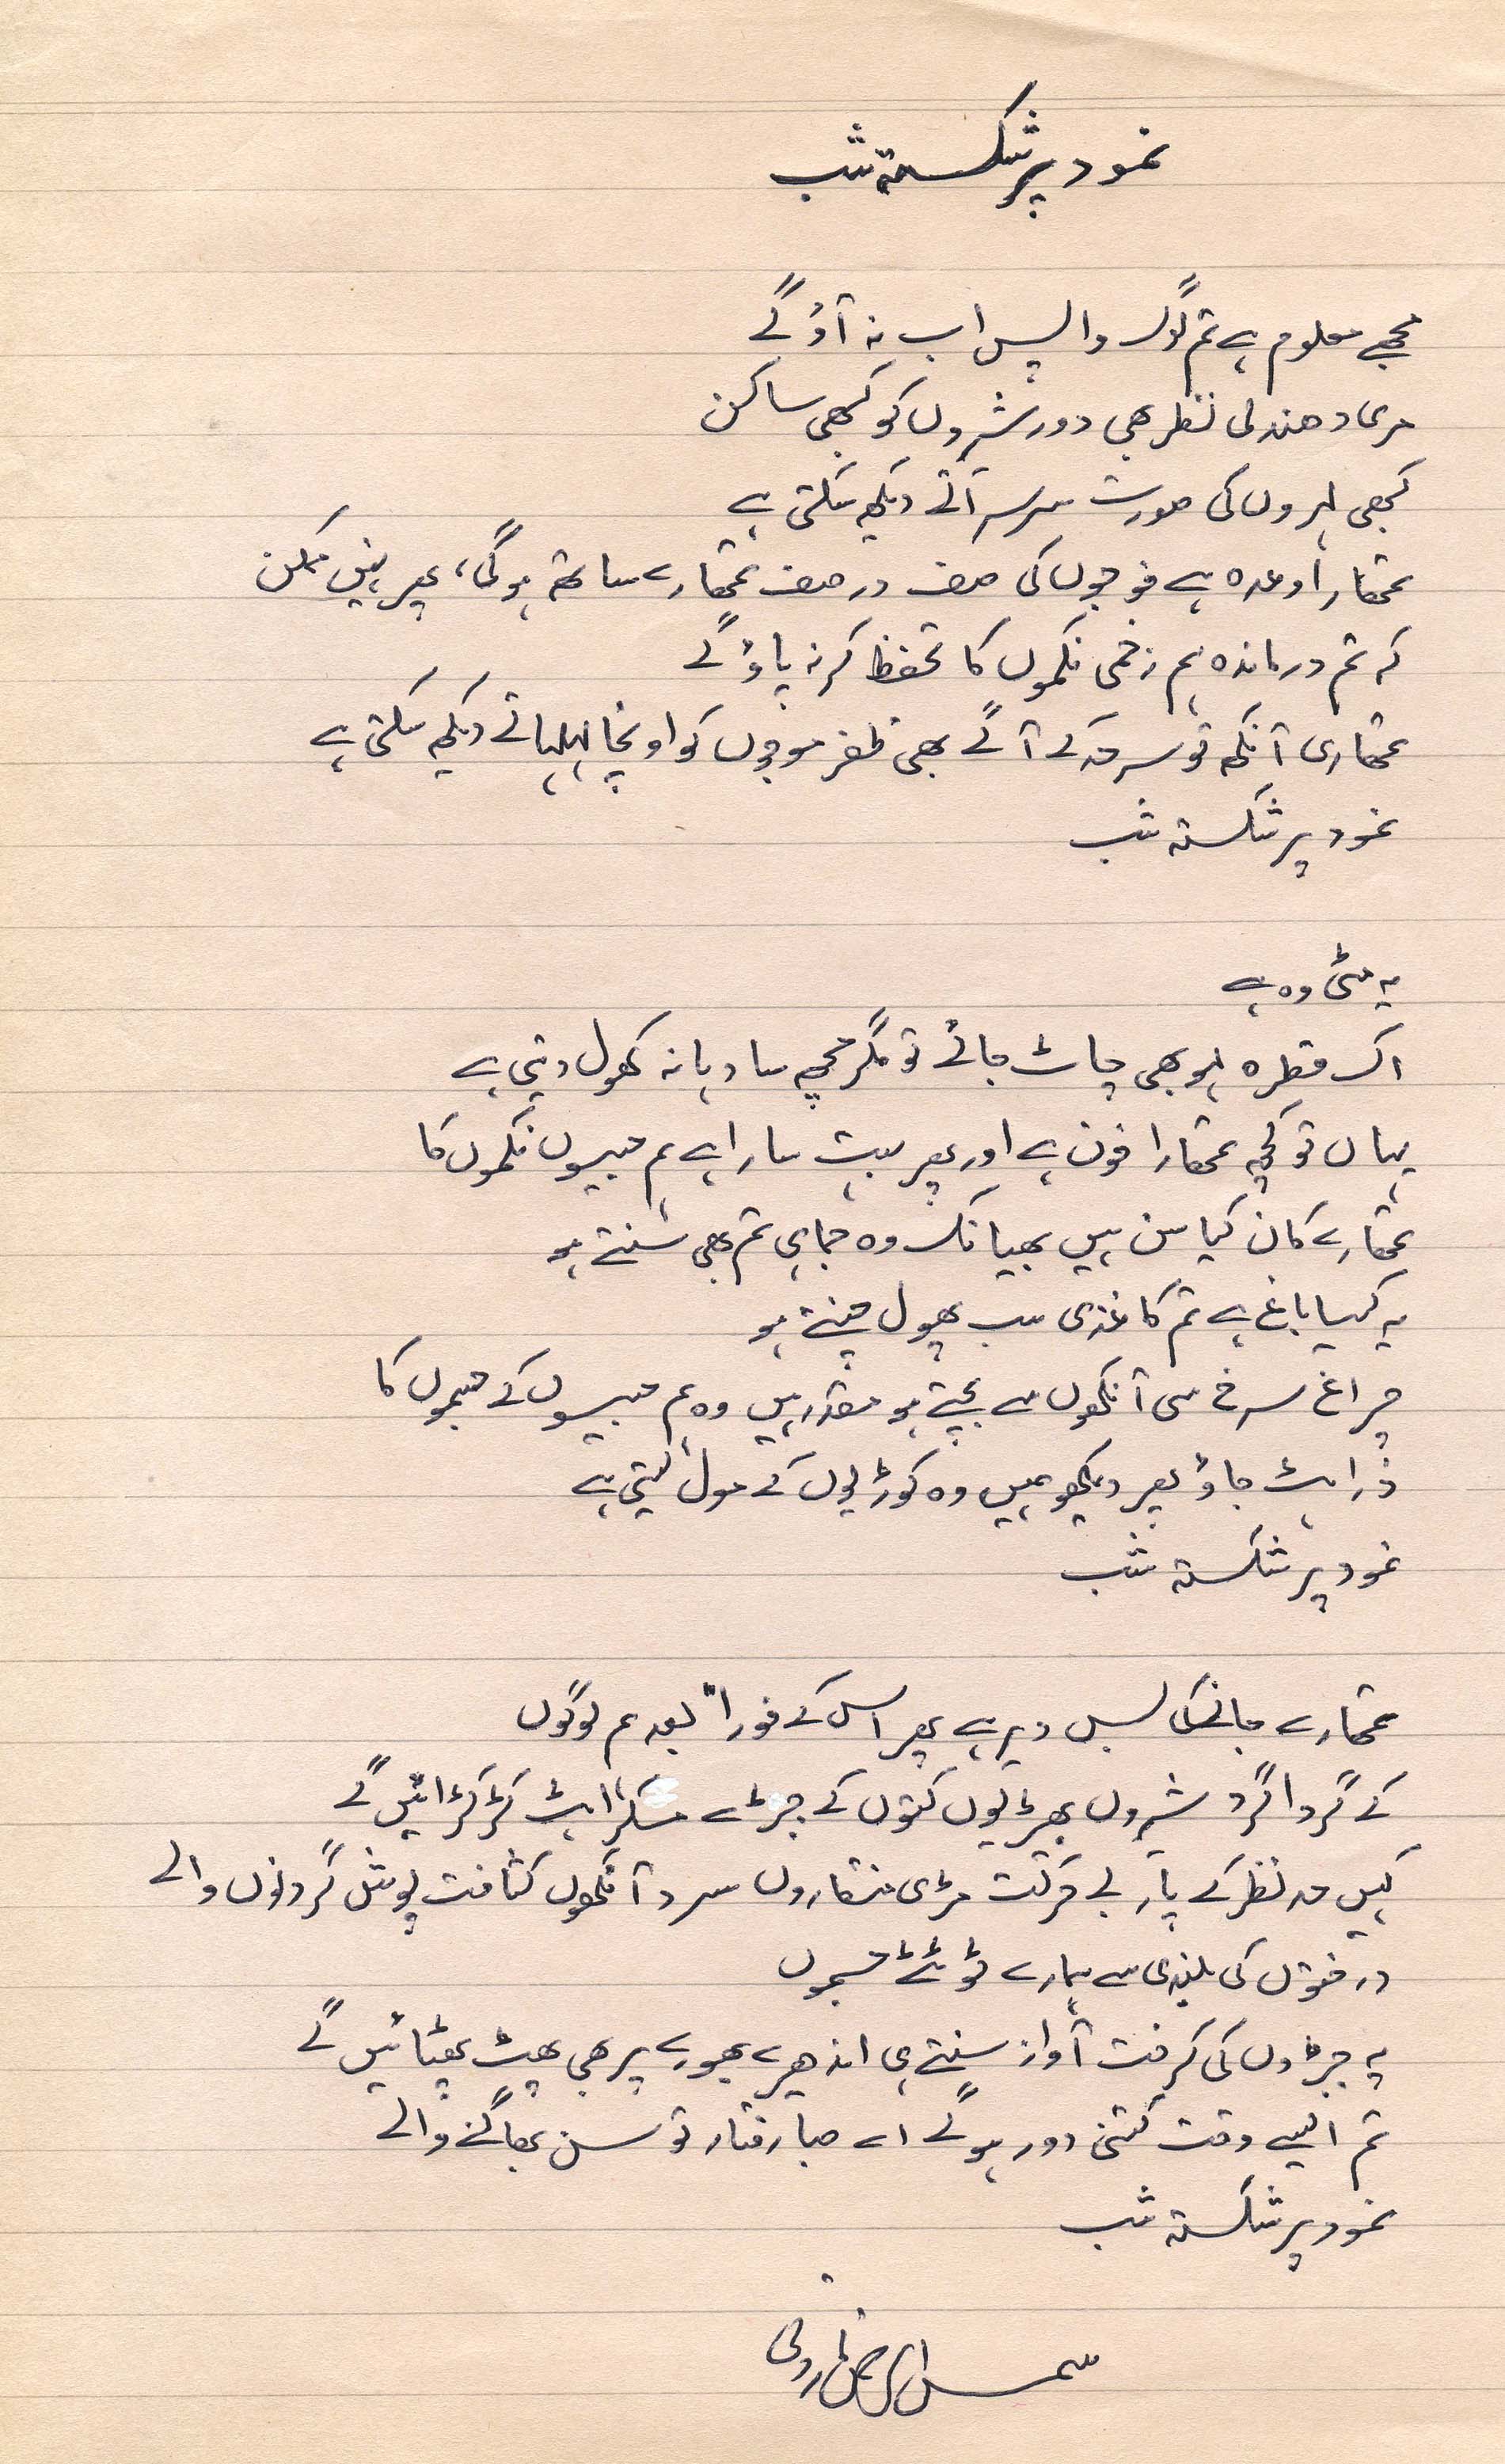 نمود پر شکستہ شب
مجھے معلوم ہے تم لوگ واپس اب نہ آؤ گے
مری دھندلی نظر بھی دور شہروں کو کبھی ساکن
کبھی لہروں کی صورت سرسراتے دیکھ سکتی ہے
تمھارا وعدہ ہے فوجوں کی صف در صف تمھارے ساتھ ہوگی، پھر نہیں ممکن
کہ تم درماندہ ہم زخمی نکموں کا تحفظ کر نہ پاؤ گے
تمھاری آنکھ تو سرحد کے آگے بھی ظفر موجوں کو اونچا لہلہاتے دیکھ سکتی ہے
نمود پر شکستہ شب
یہ مٹی وہ ہے
اک قطرہ لہو بھی چاٹ جائے تو مگرمچھ سا دہانہ کھول دیتی ہے
یہاں تو کچھ تمھارا خون ہے اور پھر بہت سارا ہے ہم جیسوں نکموں کا
تمھارے کان کیا سن ہیں بھیانک وہ جماہی تم بھی سنتے ہو
یہ کیسا باغ ہے تم کاغذی سب پھول چنتے ہو
چراغ سرخ سی آنکھوں سے بچتے ہو مقدر ہیں وہ ہم جیسوں کے جسموں کا
ذرا ہٹ جاؤ پھر دیکھو ہمیں وہ کوڑیوں کے مول لیتی ہے
نمود پر شکستہ شب
تمھارے جانے کی بس دیر ہے پھر اس کے فوراً بعد ہم لوگوں
کے گردا گرد شیروں بھیڑیوں کتوں کے جبڑے مسکراہٹ کڑکڑائیں گے
کہیں حد نظر کے پار بے حرکت مڑی منقاروں سرد آنکھوں کثافت پوش گردنوں والے
درختوں کی بلندی سے ہمارے ٹوٹتے جسموں
پہ جبڑوں کی کرخت آواز سنتے ہی اندھیرے بھورے پر بھی پھٹ پھٹائیں گے
تم ایسے وقت کتنی دور ہو گے اے صبا رفتار توسن بھاگنے والے
نمود پر شکستہ شب
شمس الرحمٰن فاروقی